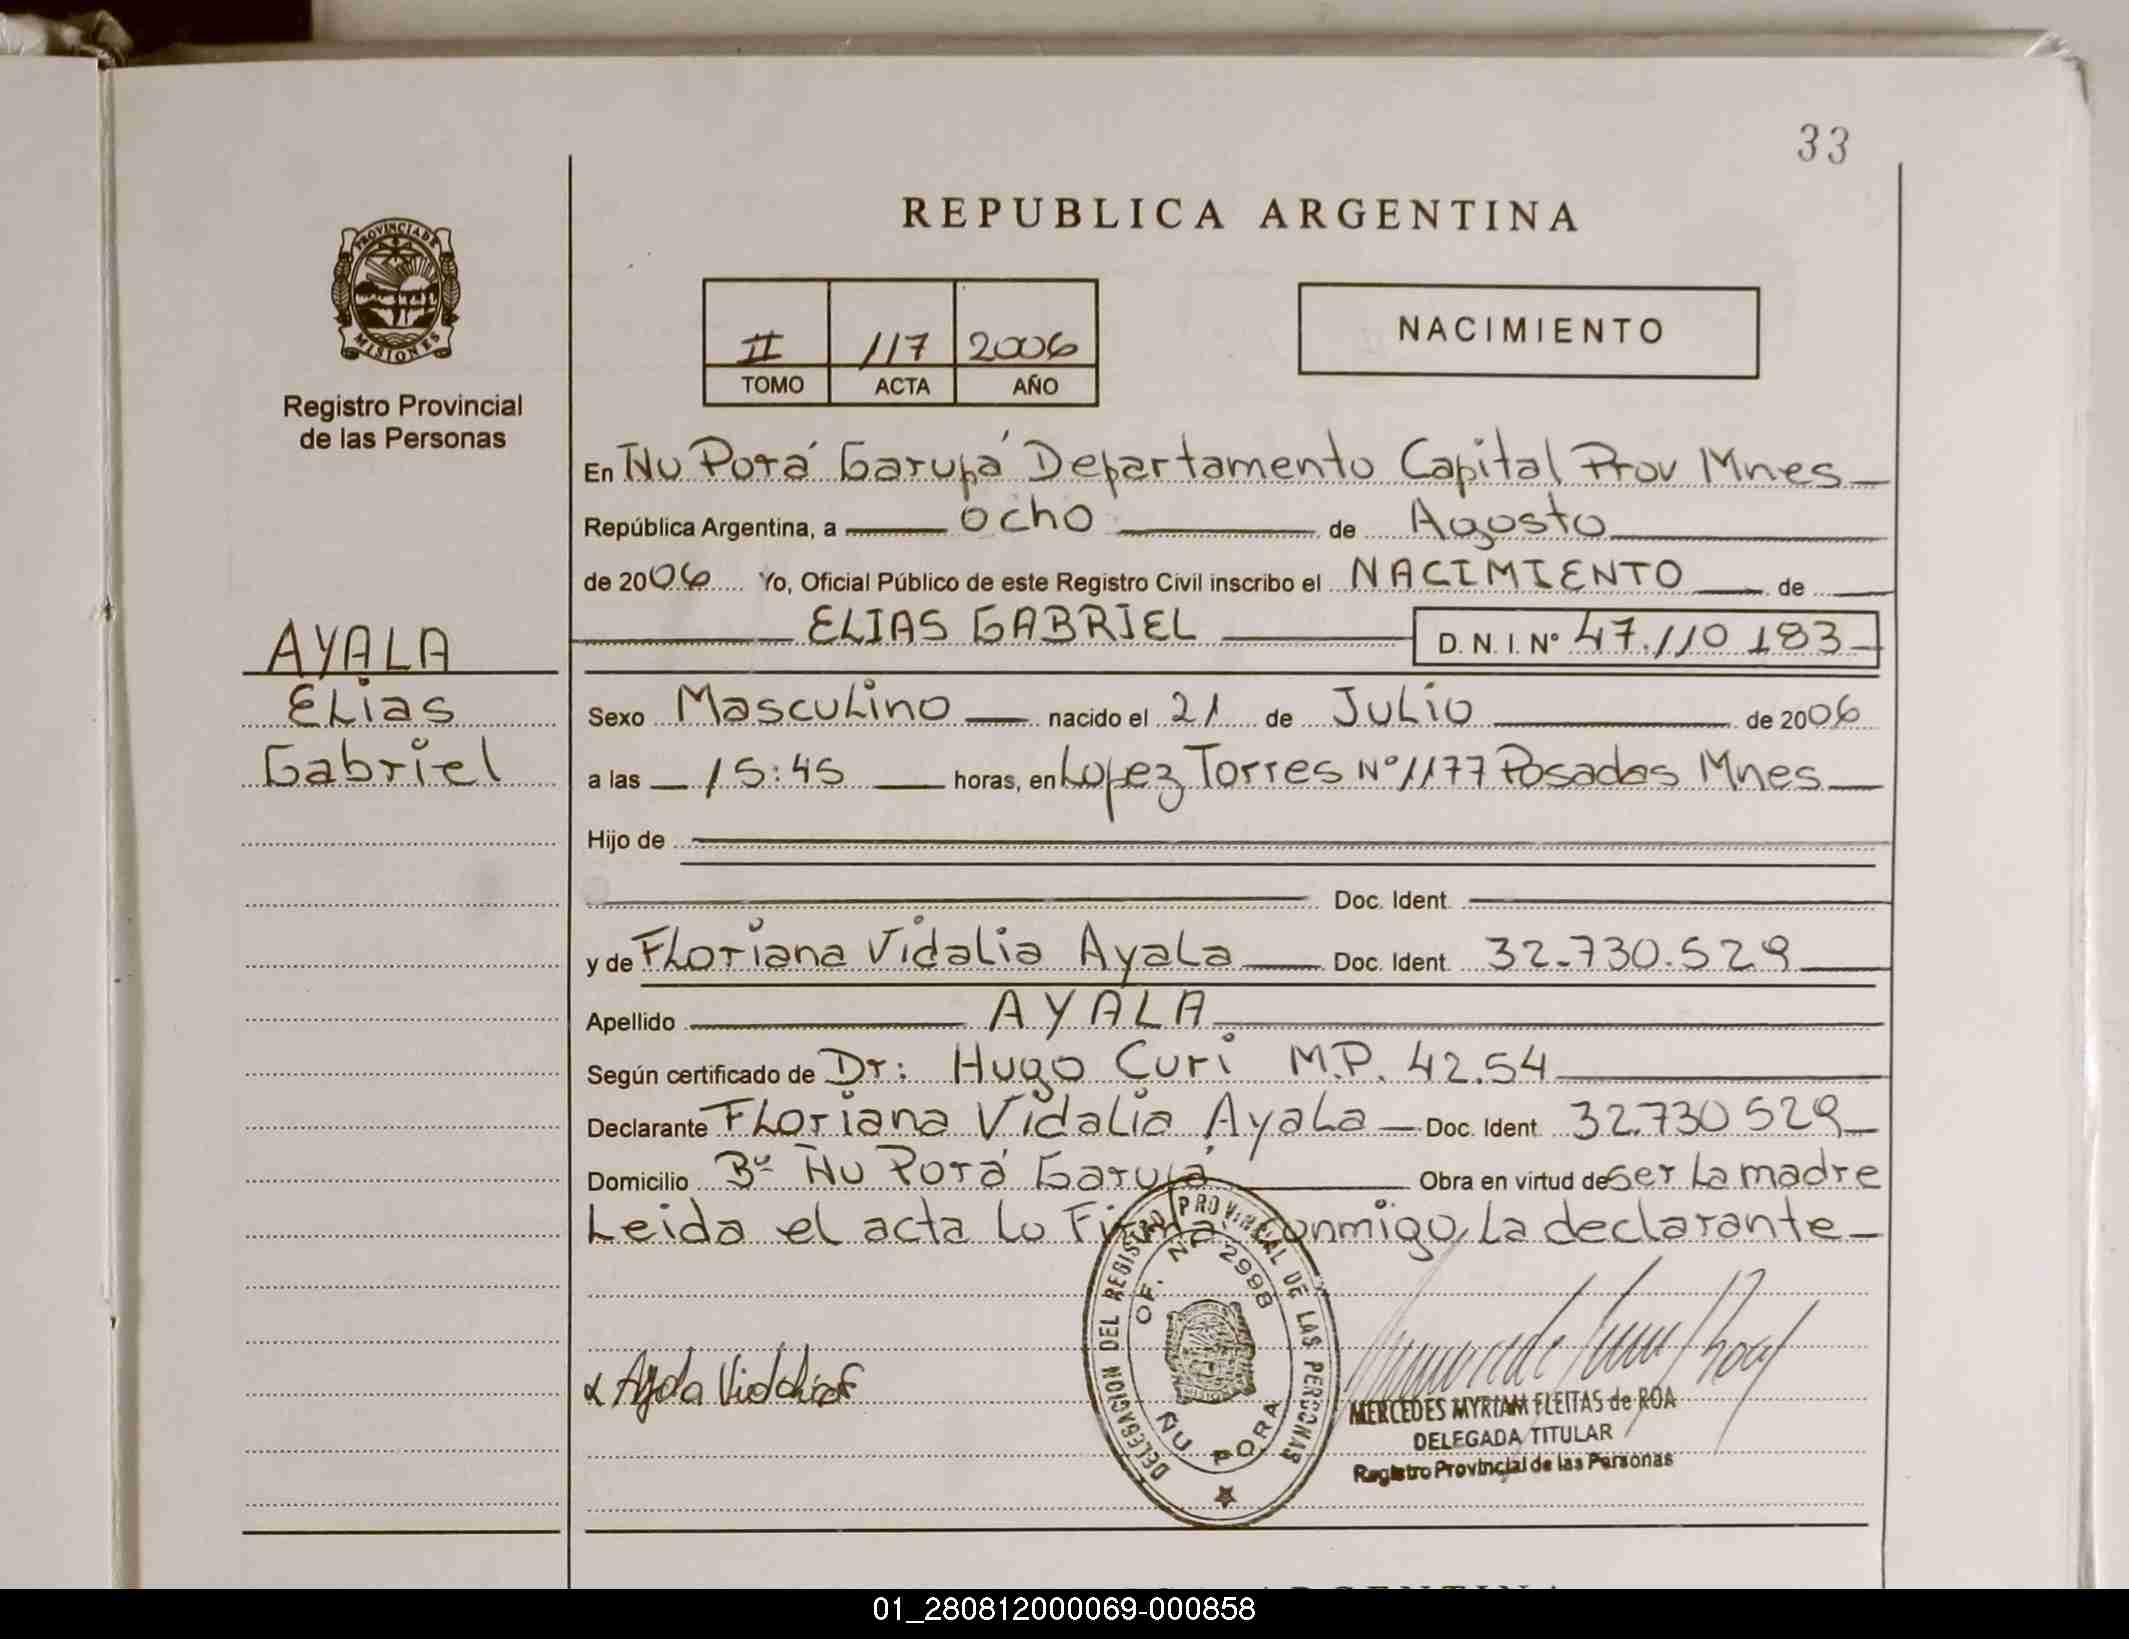 33
PROVINCIA DE
MISIONES
Registro Provincial
de las Personas
AYALA
Elias
Gabriel
REPUBLICA ARGENTINA
II 117 2006
TOMO ACTA AÑO
NACIMIENTO
En Ñu Porá Garupá Departamento Capital Prov Mnes
República Argentina, a ocho de Agosto
de 2006 Yo, Oficial Público de este Registro Civil inscribo el NACIMIENTO de
ELIAS GABRIEL D. N. I. Nº 47.110.183
Sexo Masculino nacido el 21 de Julio de 2006
a las 15:45 horas, en Lopez Torres Nº 1177 Posadas Mnes
Hijo de
Doc. Ident.
y de Floriana Vidalia Ayala Doc. Ident. 32.730.529
Apellido AYALA
Según certificado de Dr: Hugo Curi M.P. 42.54
Declarante Floriana Vidalia Ayala Doc. Ident. 32.730 529
Domicilio Bº Ñu Porá Garupá Obra en virtud de ser La madre
Leida el acta Lo Firma conmigo, La declarante
DELEGACION DEL REGISTRO PROVINCIAL DE LAS PERSONAS
OF. Nº 2998
ÑU PORA
MERCEDES MYRIAM FLEITAS de ROA
DELEGADA TITULAR
Registro Provincial de las Personas
01_280812000069-000858